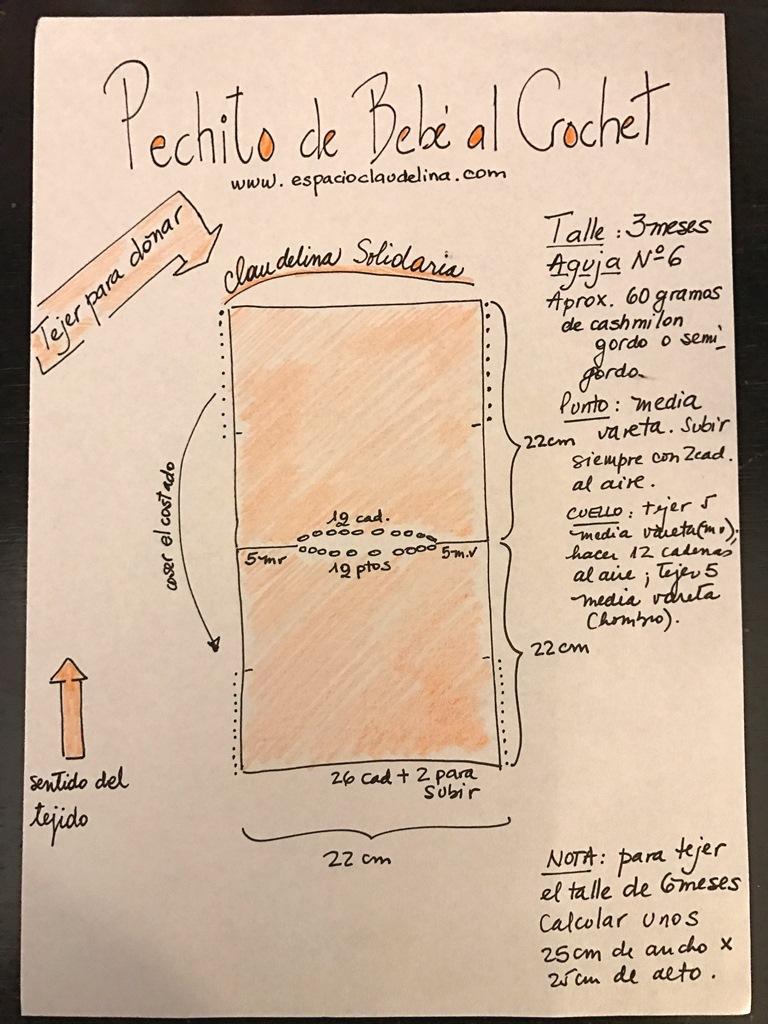 Pechito de Bebé al Crochet
www.espacioclaudelina.com
Tejer para donar
Claudelina Solidaria
Talle: 3 meses
Aguja Nº 6
Aprox. 60 gramos
de cashmilon
gordo o semi-
gordo
Punto: media
vareta. Subir
siempre con 2 cad.
al aire.
CUELLO: tejer 5
media vareta (mv);
hacer 12 cadenas
al aire; tejer 5
media vareta
(hombro).
22cm
coser el costado
12 cad.
5mv
5m.v
12 ptos
22cm
sentido del
tejido
26 cad + 2 para
subir
22 cm
NOTA: para tejer
el talle de 6meses
Calcular unos
25cm de ancho x
25cm de alto.